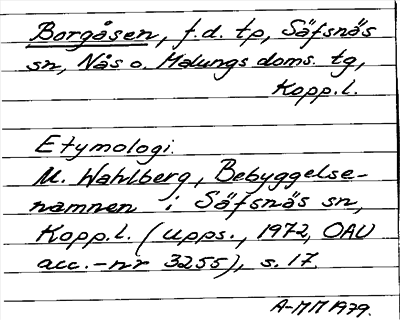 Borgåsen, f.d. tp, Säfsnäs
sn, Nås o. Malungs doms. tg,
Kopp.l.
Etymologi.
M. Wahlberg, Bebyggelse-
namnen i Säfsnäs sn,
Kopp.l. (Upps., 1972, OAU
acc.-nr 3255), s. 17.
A-MM 1979.